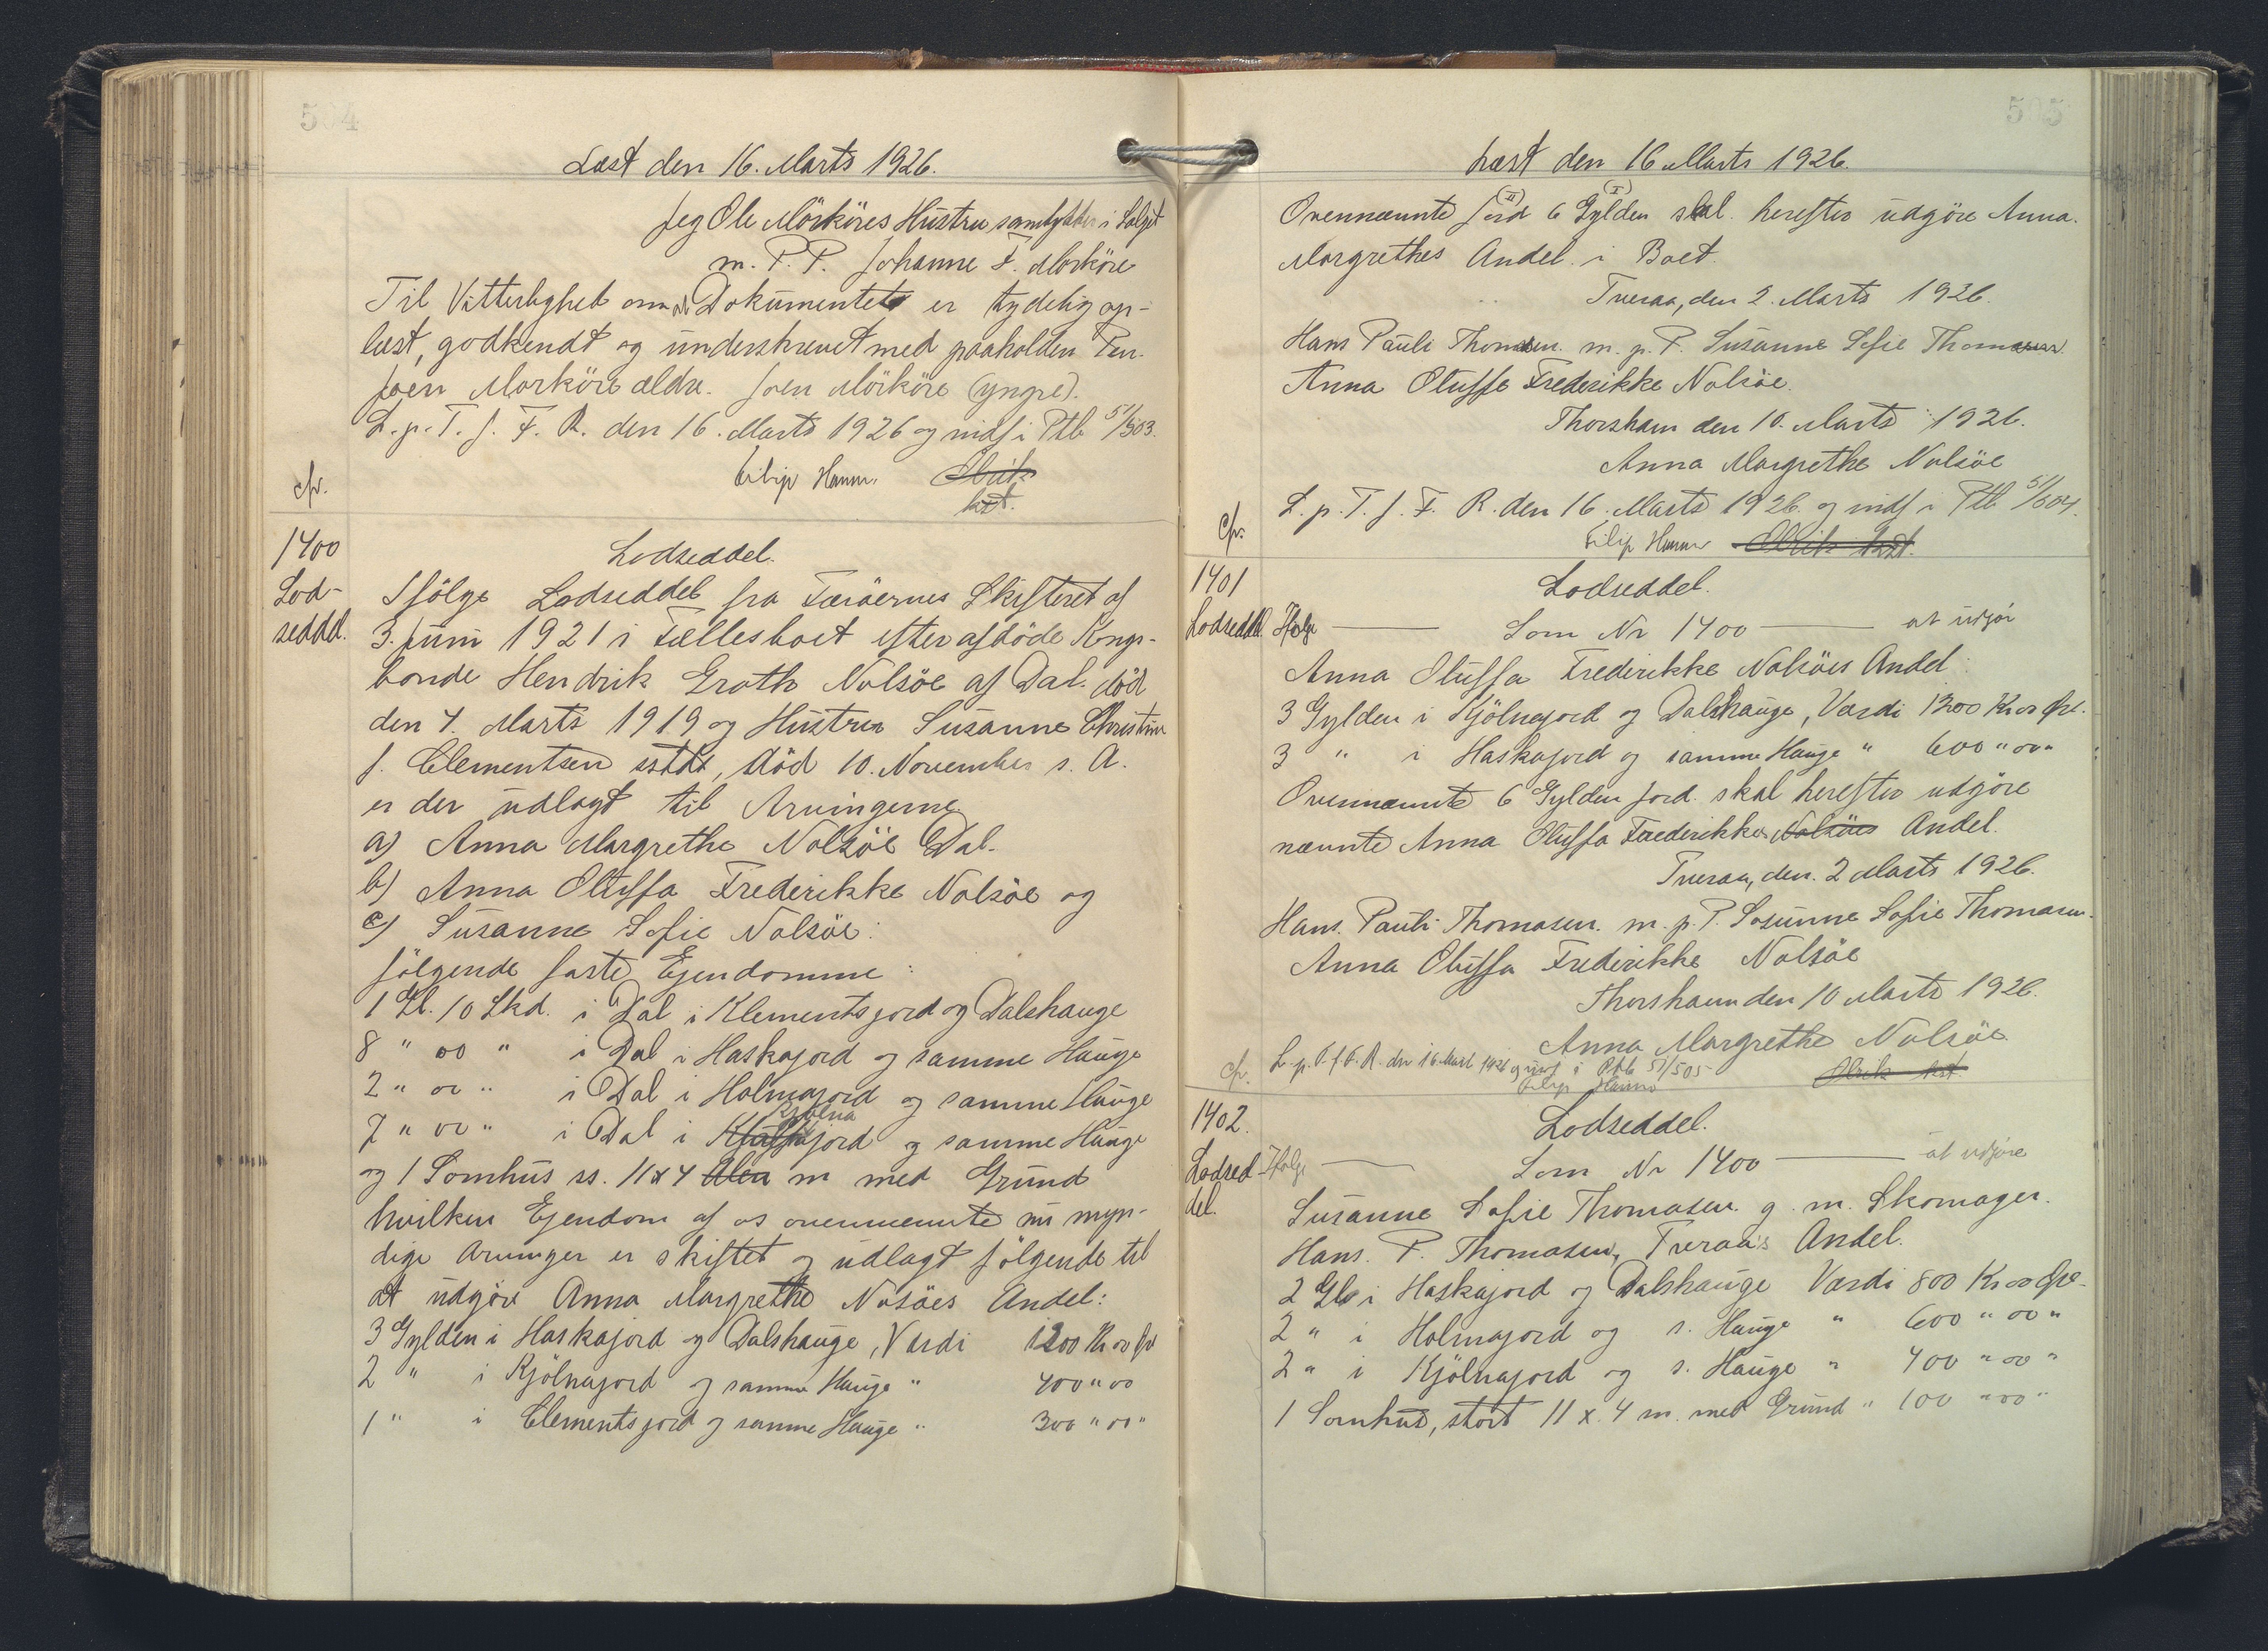 504
Læst den 16. Marts 1926.
Jeg Ole Mörköres Hustru samtykker i Salget
m. P. P. Johanne F. Mörköre
Til Vitterlighed om at Dokumentet er tydelig op-
læst, godkendt og underskrevet med paaholden Pen.
Joen Mörköre ældre. Joen Mörköre (yngre).
L. p. T. f. F. R. den 16. Marts 1926 og indf i Ptb 51/503.
Filip Hamm. Olrik
kst.
cfr.
1400
Lod-
seddel.
Lodseddel.
Ifölge Lodseddel fra Færöernes Skifteret af
3. Juni 1921 i Fællesboet efter afdöde Kongs-
bonde Hendrik Groth Nolsöe af Dal. död
den 4. Marts 1919 og Hustru Susanne Christine
f. Clementsen sstds, död 10. November s. A.
er der udlagt til Arvingerne
a) Anna Margrethe Nolsöe Dal.
b) Anna Oluffa Frederikke Nolsöe og
c) Susanne Sofie Nolsöe:
fölgende faste Ejendomme:
1 Gl. 10 Skd. i Dal i Klementsjord og Dalshauge
8 " 00 " i Dal i Haskajord og samme Hauge
2 " 00 " i Dal i Holmajord og samme Hauge
Kjölna
7 " 00 " i Dal i jord og samme Hauge
og 1 Sornhus ss. 11 x 4 Alen m med Grund
hvilken Ejendom af os ovennævnte nu myn-
dige Arvinger er skiftet og udlagt fölgende til
at udgöre Anna Margrethe Nolsöes Andel:
3 Gylden i Haskajord og Dalshauge, Værdi 1200 Kr 00 Öre
2 " i Kjölnajord og samme Hauge " 400 " 00
1 " i Clementsjord og samme Hauge " 300 " 00 "
505
Læst den 16 Marts 1926.
Ovennævnte Jord (II) 6 Gylden (I) skal herefter udgöre Anna
Margrethes Andel i Boet.
Tveraa, den 2. Marts 1926.
Hans Pauli Thomasen. m. p. P. Susanne Sofie Thomasen.
Anna Oluffe Frederikke Nolsöe.
Thorshavn den 10. Marts 1926.
Anna Margrethe Nolsöe
L. p. T. f. F. R. den 16. Marts 1926. og indf i Ptb 51/504.
cfr.
Filip Hamm Olrik kst.
1401
Lodseddel
Lodseddel.
Ifölge Som Nr 1400 at udgör
Anna Oluffa Frederikke Nolsöes Andel:
3 Gylden i Kjölnajord og Dalshauge, Værdi 1200 Kr 00 Öre.
3 " i Haskajord og samme Hauge " 600 " 00 "
Ovennævnte 6 Gylden Jord skal herefter udgöre
nævnte Anna Oluffa Frederikkes Nolsöes Andel.
Tveraa, den. 2 Marts 1926.
Hans. Pauli Thomasen. m. p. P. Sosunne Sofie Thomasen.
Anna Oluffa Frederikke Nolsöe
Thorshavn den 10 Marts 1926.
Anna Margrethe Nolsöe
cfr. L. p. T. f. F. R. den 16 Marts 1926 og indf i Ptb 51/505
Filip Hamm Olrik kst.
1402.
Lodsed-
del.
Lodseddel.
Ifölge Som Nr 1400 at udgöre
Susanne Sofie Thomasen g. m. Skomager.
Hans. P. Thomasen, Tveraa's Andel.
2 Gl. i Haskajord og Dalshauge Værdi 800 Kr 00 Öre.
2 " i Holmajord og s. Hauge " 600 " 00 "
2 " i Kjölnajord og s. Hauge " 400 " 00 "
1 Sornhus, stort 11 x 4 m. med Grund " 100 " 00 "